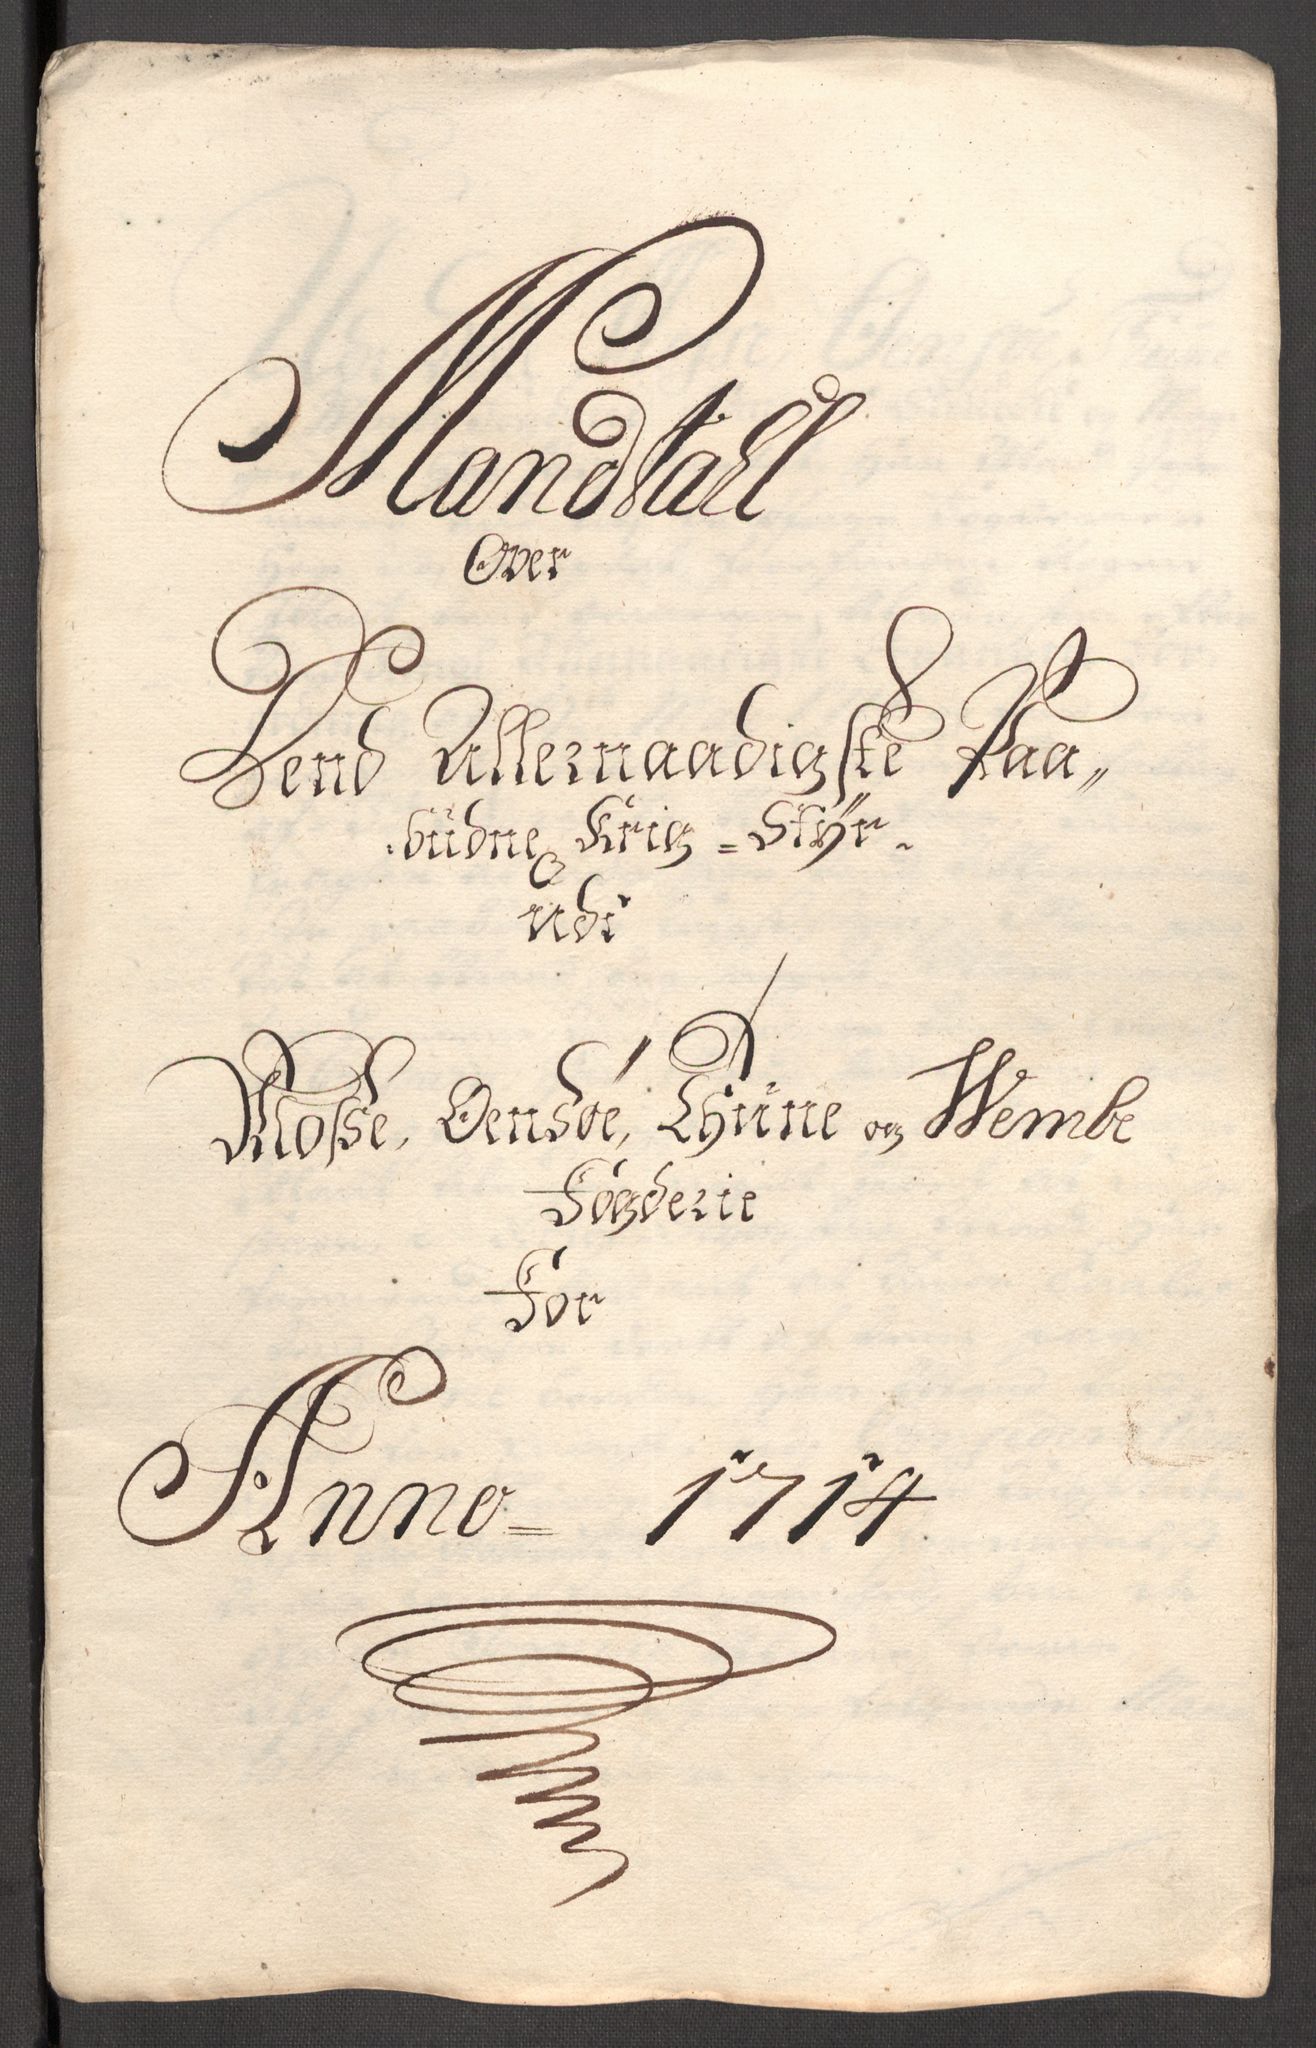 Mandtall
Over
Dend Allernaadigste Paa„
budne Krig = Styr
udi
Mosse, Oensöe, Thune og Wembe
Fögderie
For
Anno = 1714